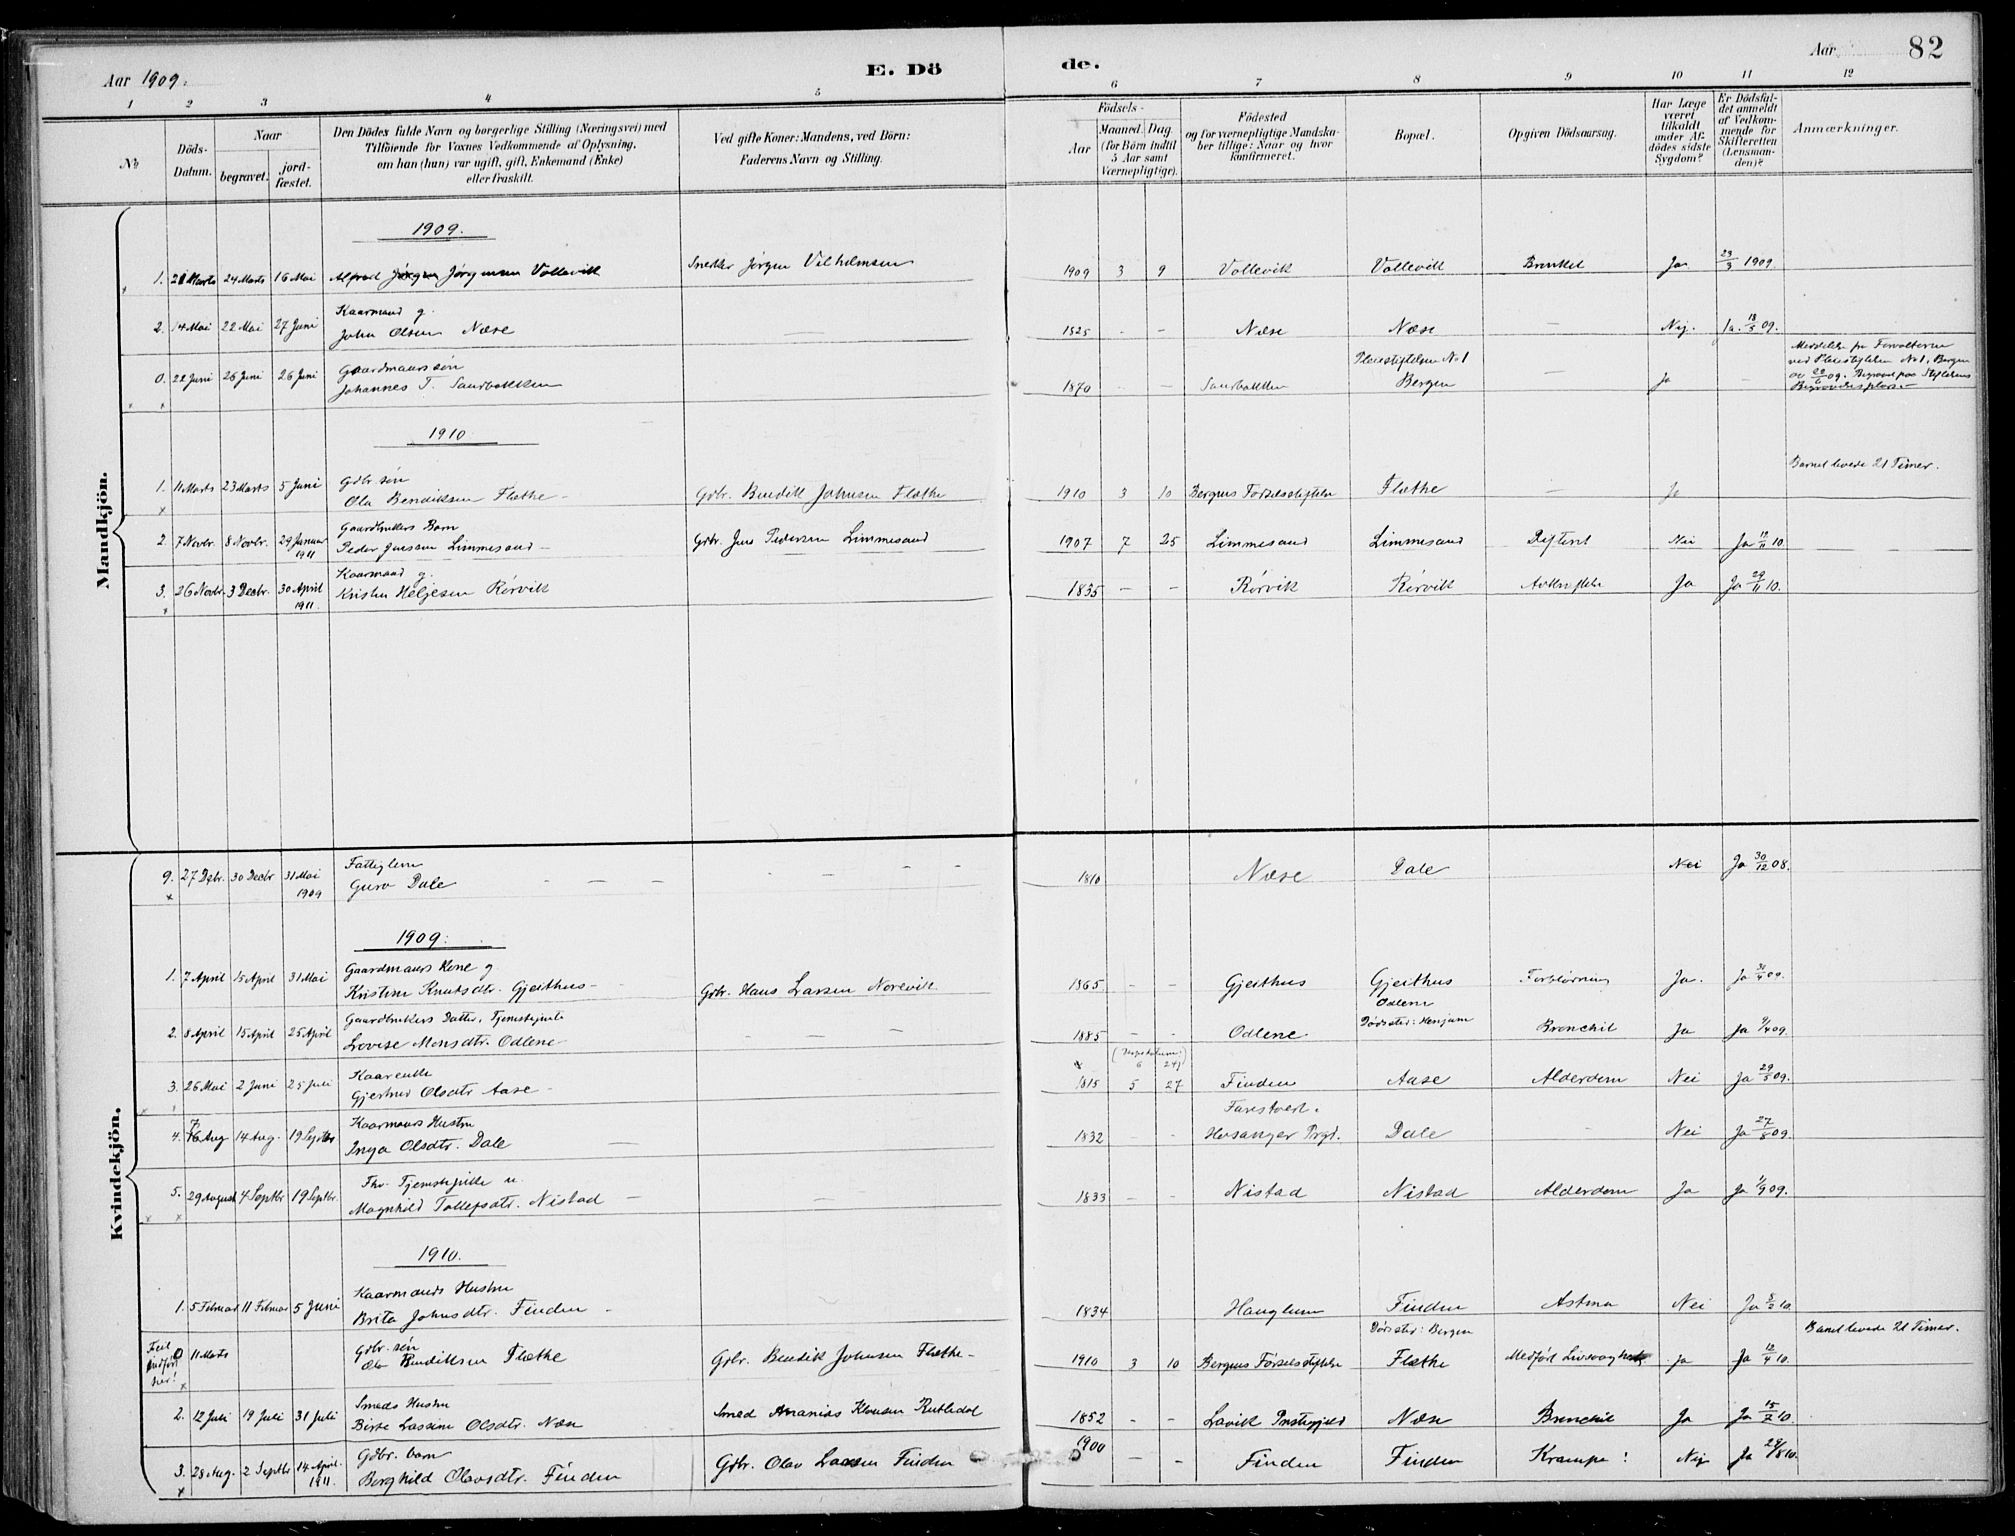 Aar 1909.
E. Dö
de.
Aar
82
1 2 3 4 5 6 7 8 9 10 11 12
No
Döds-Datum.
Naar
begravet.
jord-fæstet.
Den Dödes fulde Navn og borgerlige Stilling (Næringsvei) med
Tilföiende for Voxnes Vedkommende af Oplysning,
om han (hun) var ugift, gift, Enkemand (Enke)
eller fraskilt.
Ved gifte Koner: Mandens, ved Börn:
Faderens Navn og Stilling.
Födsels-
Aar
Maaned. Dag.
(for Børn indtil
5 Aar samt
Værnepligtige).
Födested
og for værnepligtige Mandska-
ber tillige: Naar og hvor
konfirmeret.
Bopæl.
Opgiven Dödsaarsag.
Har Læge
været
tilkaldt
under Af-
dödes sidste
Sygdom?
Er Dödsfal-
det anmeldt
af Vedkom-
mende for
Skifteretten
(Lensman-
den)?
Anmærkninger.
Mandkjön.
1909.
1. 21 Marts 24 Marts 16 Mai Alfred Jørgensen Vollevik Snekker Jørgen Vilhelmsen 1909 3 9 Vollevik Vollevik Bronkit Ja 23/3 1909
Kaarmand g.
2. 14 Mai 22 Mai 27 Juni John Olsen Næse — 1825 - - Næse Næse — Nej. Ja. 18/5 09.
Gaardmanssøn
0. 22 Juni 26 Juni 26 Juni Johannes T. Saurbakken 1870 — — Saurbakken Pleiestiftelsen No 1 Bergen — Ja —
Meddelelse fra Forvalteren
ved Pleiestiftelsen No 1, Bergen
av 22/6 09. Begravet paa Stiftelsens
Begravelsesplads.—
1910
Barnet levede 21 Timer.
Gdbr. søn
1. 11 Marts 23 Marts 5 Juni Ola Bendiksen Flæthe - Gdbr. Bendik Johnsen Flæthe 1910 3 10 Bergens Fødselsstiftelse Flæthe — Ja
Gaardbrukers Barn
2. 7 Novbr. 8 Novbr. 29 Januar 1911 Peder Jensen Limmesand - Gdbr. Jens Pedersen Limmesand 1907 7 25 Limmesand Limmesand Difterit Nei Ja 12/11 10.
Kaarmand g.
3. 26 Novbr. 3 Decbr. 30 April 1911. Kristen Heljesen Rørvik 1835 — - Rørvik Rørvik Avkræftelse Ja Ja 29/11 10.
Kvindekjön.
Fattiglem
9. 27 Dcbr. 30 Decbr 31 Mai 1909 Guro Dale 1810 Næse Dale Nei Ja 30/12 08.
1909.
Gaardmans Kone g
1. 7 April 15 April 31 Mai Kristine Knutsdtr. Gjeithus - Gdbr. Hans Larsen Norevik 1865 - - Gjeithus Gjeithus Forblødning Ja. Ja 30/4 09.
Gaardbrukers Datter, Tjenestepike
2. 8 April 15 April 25 April Lovise Monsdtr. Odlene 1885 - - Odlene Odlene Dødssted: Henjum Bronchit Ja Ja 9/4 09.
Kaarenke
3. 26 Mai 2 Juni 25 Juli Gjertrud Olsdtr Aase - 1815 5 27 Finden Aase Alderdom Nei Ja 29/5 09.
Kaarmans Hustru
4. 7 Aug 14 Aug. 19 Septbr Inga Olsdtr. Dale — 1832 - Hosanger Prgd. Dale - Nei Ja 27/8 09.
Fhv. Tjenestepike u.
5. 29 August 4 Septbr 19 Septbr. Magnhild Tollefsdtr. Nistad — 1833 - - Nistad Nistad Alderdom Ja Ja 11/9 09.
1910.
Kaarmands Hustru
1. 5 Februar 11 Februar 5 Juni Brita Johnsdtr. Finden - 1834 Hauglum Finden Astma Nei Ja 5/2 10.
Feil indført her!
Gdbr. søn
0 11 Marts Ola Bendiksen Flæthe Gdbr. Bendik Johnsen Flæthe - 1910 3 10 Bergens Fødselsstiftelse Dødssted: Bergen Flæthe Medført Livssvaghet Ja Ja 12/4 10.
Barnet levede 21 Timer.
Smeds Hustru
2. 12 Juli 19 Juli 31 Juli Birte Lassine Olsdtr. Næse Smed Ananias Klausen Rutledal 1852 - - Lavik Prestegjeld Næse Bronchit Ja Ja 15/7 10.
Gdbr. barn
3. 28 Aug. 2 Septbr 14 April 1911. Borghild Olavsdtr. Finden Gdbr. Olav Larsen Finden 1900 — - Finden Finden Krampe! Nej Ja 29/8 10.